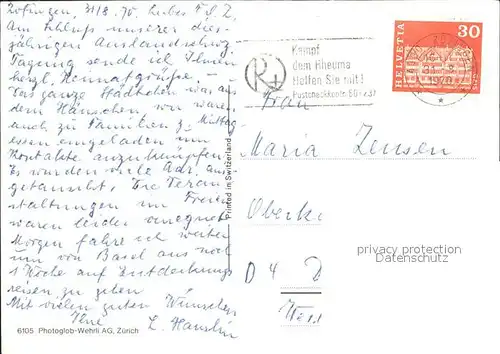 Zofingen, 31/8. 70. Liebes F. S. Z.
Am Schluss unserer dies-
jährigen Auslandschwz.
Tagung sende ich Ihnen
herzl. Heimatgrüsse. —
Das ganze Städtchen war aus
dem Häuschen, wir waren
auch zu Familien z. Mittag
essen eingeladen um
Kontakte anzuknüpfen.
Es wurden viele Adr. aus
getauscht, Die Veran
staltungen im Freien
waren leider
Morgen fahre ich weiter
um von Basel aus noch
1 Woche auf Entdeckungs
reisen zu gehen
Mit vielen guten Wünschen
Ihre
6105 Photoglob-Wehrli AG, Zürich
Printed in Switzerland
Kampf
dem Rheuma
Helfen Sie mit!
R
HELVETIA
30
1970
Frau
Maria Zensen
Oberk
D 4 D
privacy protection
Datenschutz